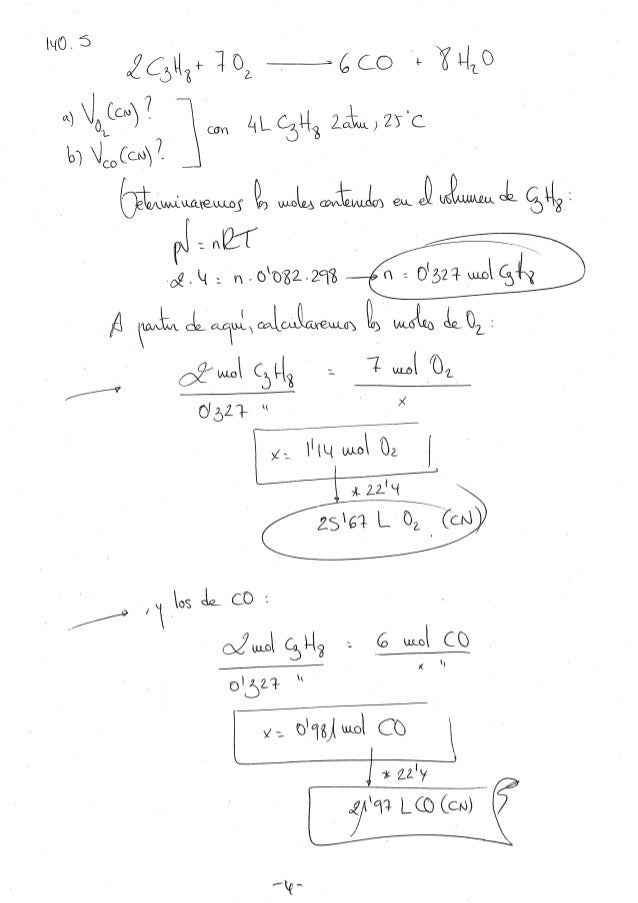 140.5
2C₃H₈ + 7O₂ → 6CO + 8H₂O
a) V_O₂ (CN)?
b) V_CO (CN)?
con 4L C₃H₈ 2atm, 25°C
Determinaremos los moles contenidos en el volumen de C₃H₈:
pV = nRT
2·4 = n·0'082·298 → n = 0'327 mol C₃H₈
A partir de aquí, calcularemos los moles de O₂:
→ 2 mol C₃H₈ = 7 mol O₂
0'327 " x
x = 1'14 mol O₂
* 22'4
25'67 L O₂ (CN)
→, y los de CO:
2 mol C₃H₈ = 6 mol CO
0'327 " x "
x = 0'981 mol CO
* 22'4
21'97 L CO (CN)
-4-